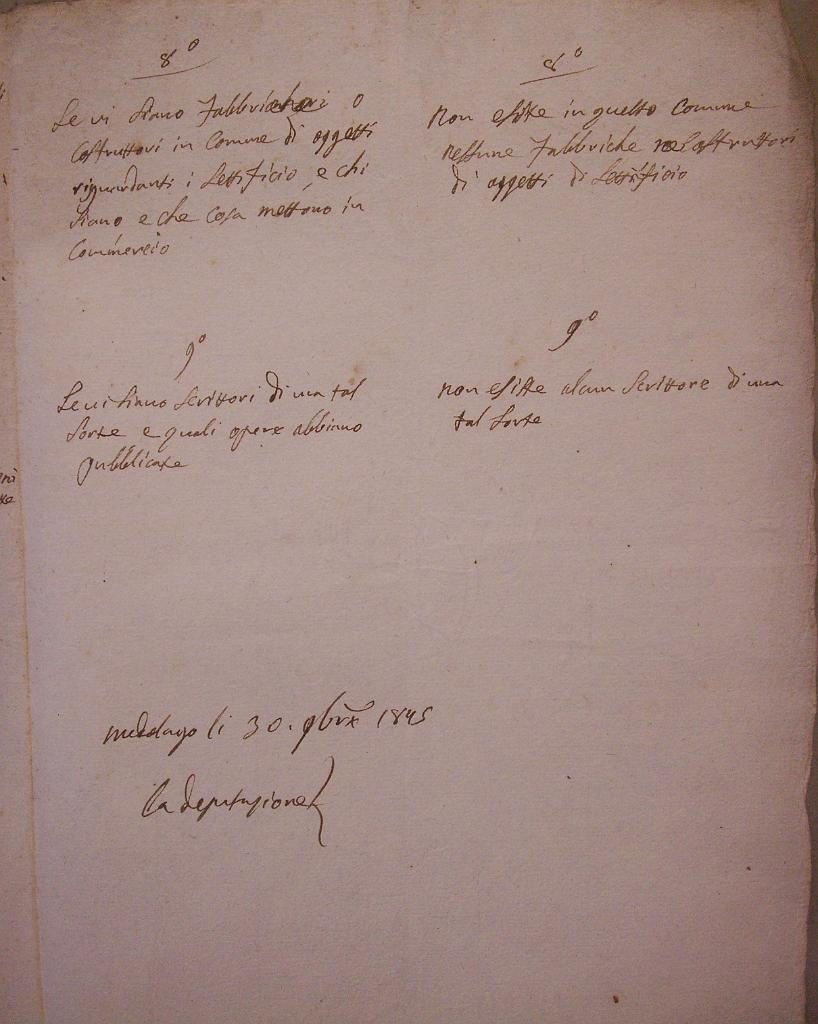 8º
Se vi siano Fabbricatori o
Costruttori in Comune di oggetti
riguardanti i Settificio, e chi
siano e che cosa mettono in
Commercio
8º
Non esiste in questo Comune
nessune Fabbriche ne Costruttori
di oggetti di Settificio
9º
Se vi siano Scrittori di una tal
sorte e quali opere abbiano
pubblicate
9º
non esiste alcun Scrittore di una
tal sorte
li 30. 9brx 1845
La deputazione